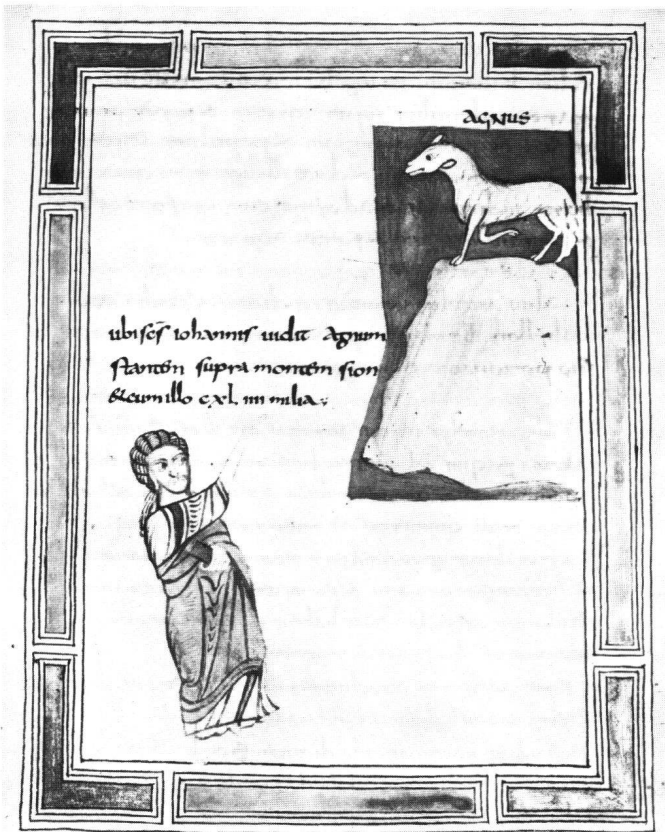 AGNUS
ubi scs iohannis uidit Agnum
stantem supra montem sion
& cum illo cxl. iiii milia.